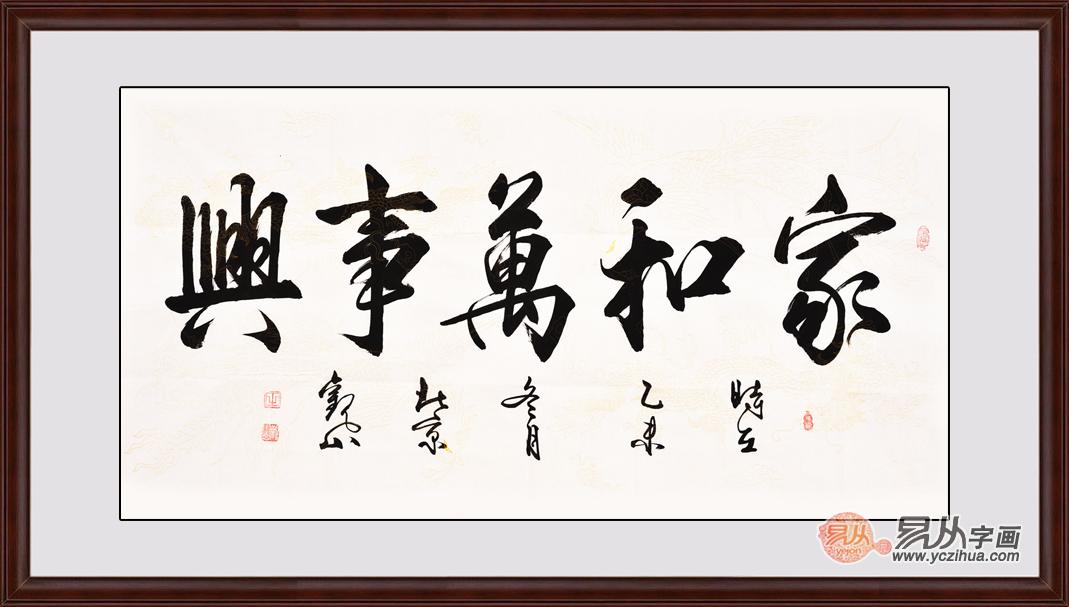 家和萬事興
時在乙未冬月北京
易从
yejon
易从字画
www.yczihua.com